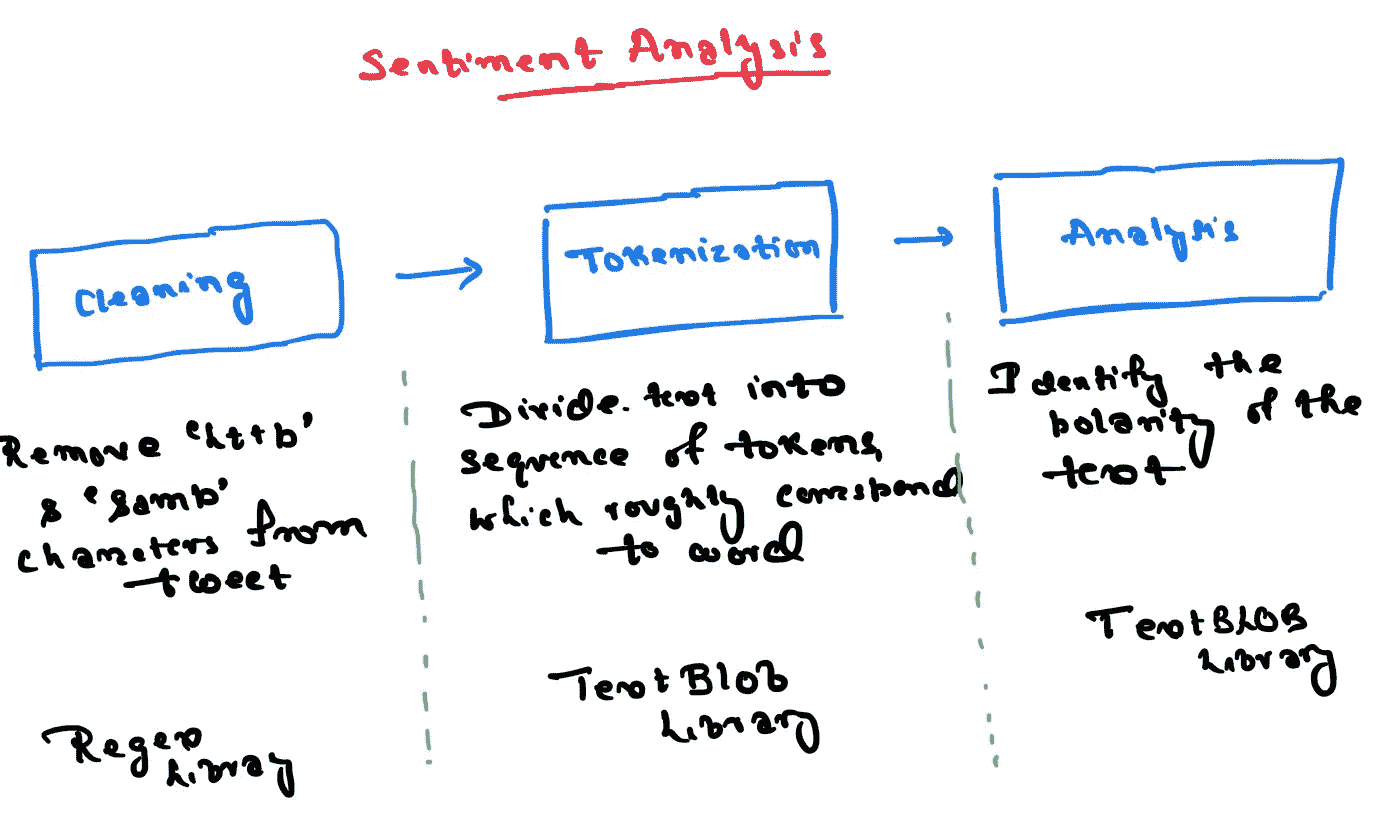 Sentiment Analysis
Cleaning
Tokenization
Analysis
Remove 'http'
& 'Samp'
characters from
tweet
Regex
Library
Divide text into
sequence of tokens,
which roughly correspond
to word
TextBlob
Library
Identify the
polarity of the
text
TextBLOB
Library